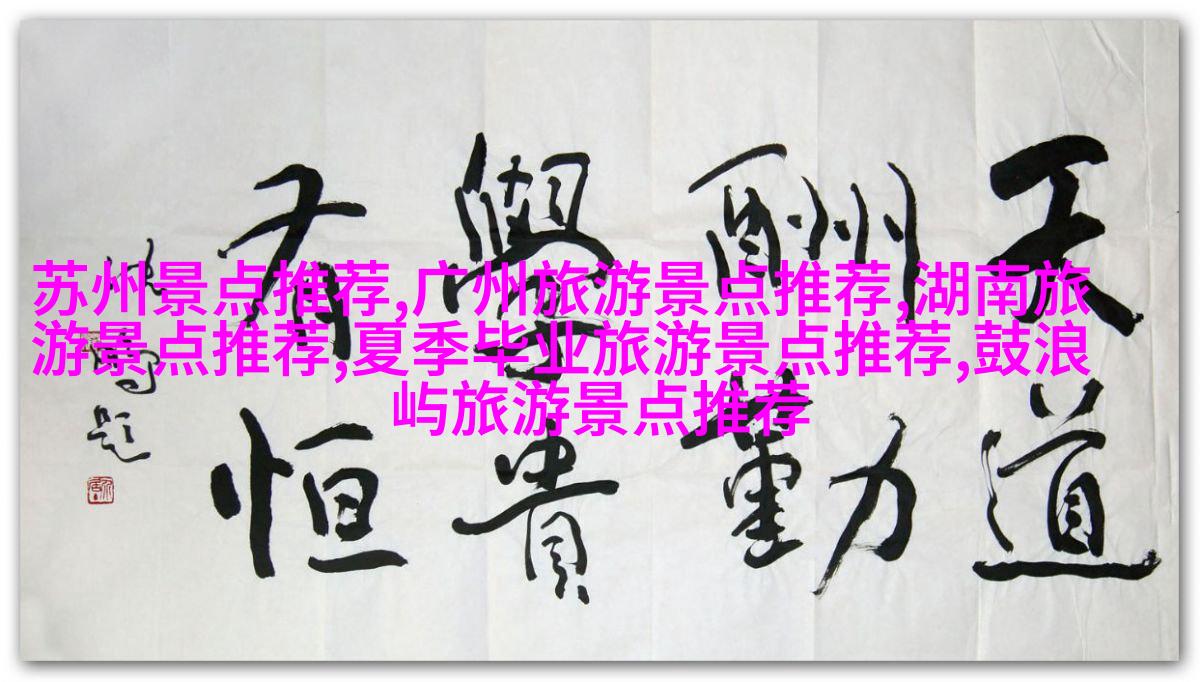 天道
酬勤
學貴
有恒
题
苏州景点推荐,广州旅游景点推荐,湖南旅
游景点推荐,夏季毕业旅游景点推荐,鼓浪
屿旅游景点推荐